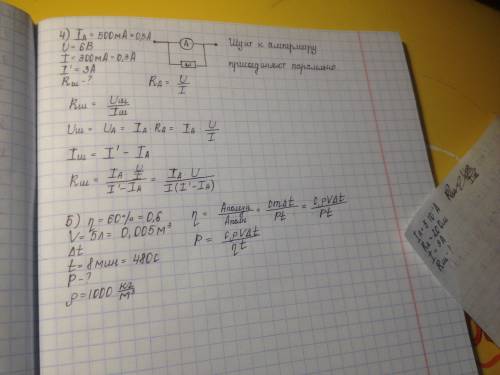 4) I_A = 500мА = 0,5А
U = 6В
I = 300мА = 0,3А
I' = 3А
R_ш - ?
А
Шунт к амперметру
присоединяют параллельно
R_A = U/I
R_ш = U_ш/I_ш
U_ш = U_A = I_A · R_A = I_A · U/I
I_ш = I' - I_A
R_ш = (I_A · U/I)/(I' - I_A) = (I_A U)/(I(I' - I_A))
5) η = 60% = 0,6
V = 5л = 0,005м³
Δt
t = 8мин = 480с
P - ?
ρ = 1000 кг/м³
η = Aполезн/Aполн = cmΔt/Pt = cρVΔt/Pt
P = cρVΔt/ηt